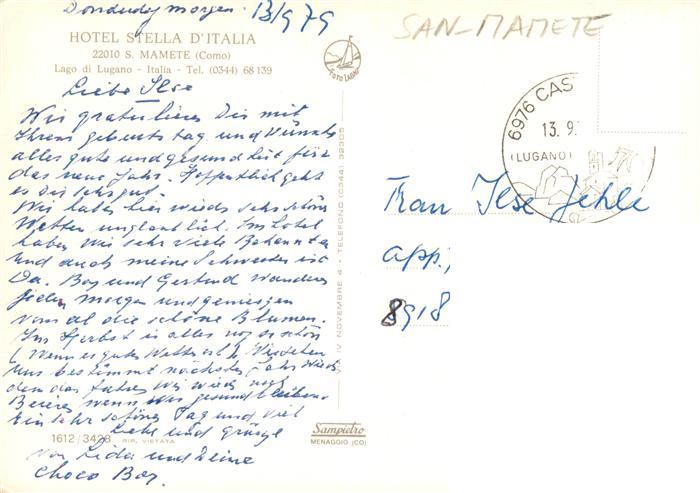 Donderdag morgen 13/9 79
HOTEL STELLA D'ITALIA
22010 S. MAMETE (Como)
Lago di Lugano - Italia - Tel. (0344) 68 139
Liebe Ilse
Wir gratulieren Dir mit
Ihrem geburts tag und
alles gute und gesundheit für
das neue Jahr. Hoffentlich geht
es Dir sehr gut.
Wir haben hier wieder sehr schönes
Wetter unglaublich. Im Hotel
haben wir sehr viele Bekannten
und auch meine Schwester ist
Da. Boy und Gertrud wandern
jeden morgen und geniessen
von al die schöne Blumen.
Im Herbst is alles noch so schön
( Wenn es gutes Wetter ist ) Wir
uns bestimmt nächstes Jahr wieder
den dan fahren wir wieder nach
wenn wir gesund bleiben.
Ein sehr schönes Tag und viel
Liebe und grüsse
von Lida und Deine
Choco Boy.
1612/3428 RIP. VIETATA
FOTO LAGHI
VIA IV NOVEMBRE 4 - TELEFONO (0344) 32305
Sampietro
MENAGGIO (CO)
SAN-MAMETE
6976 CAS
13.9.
(LUGANO)
Frau Ilse Jehle
app.,
8918